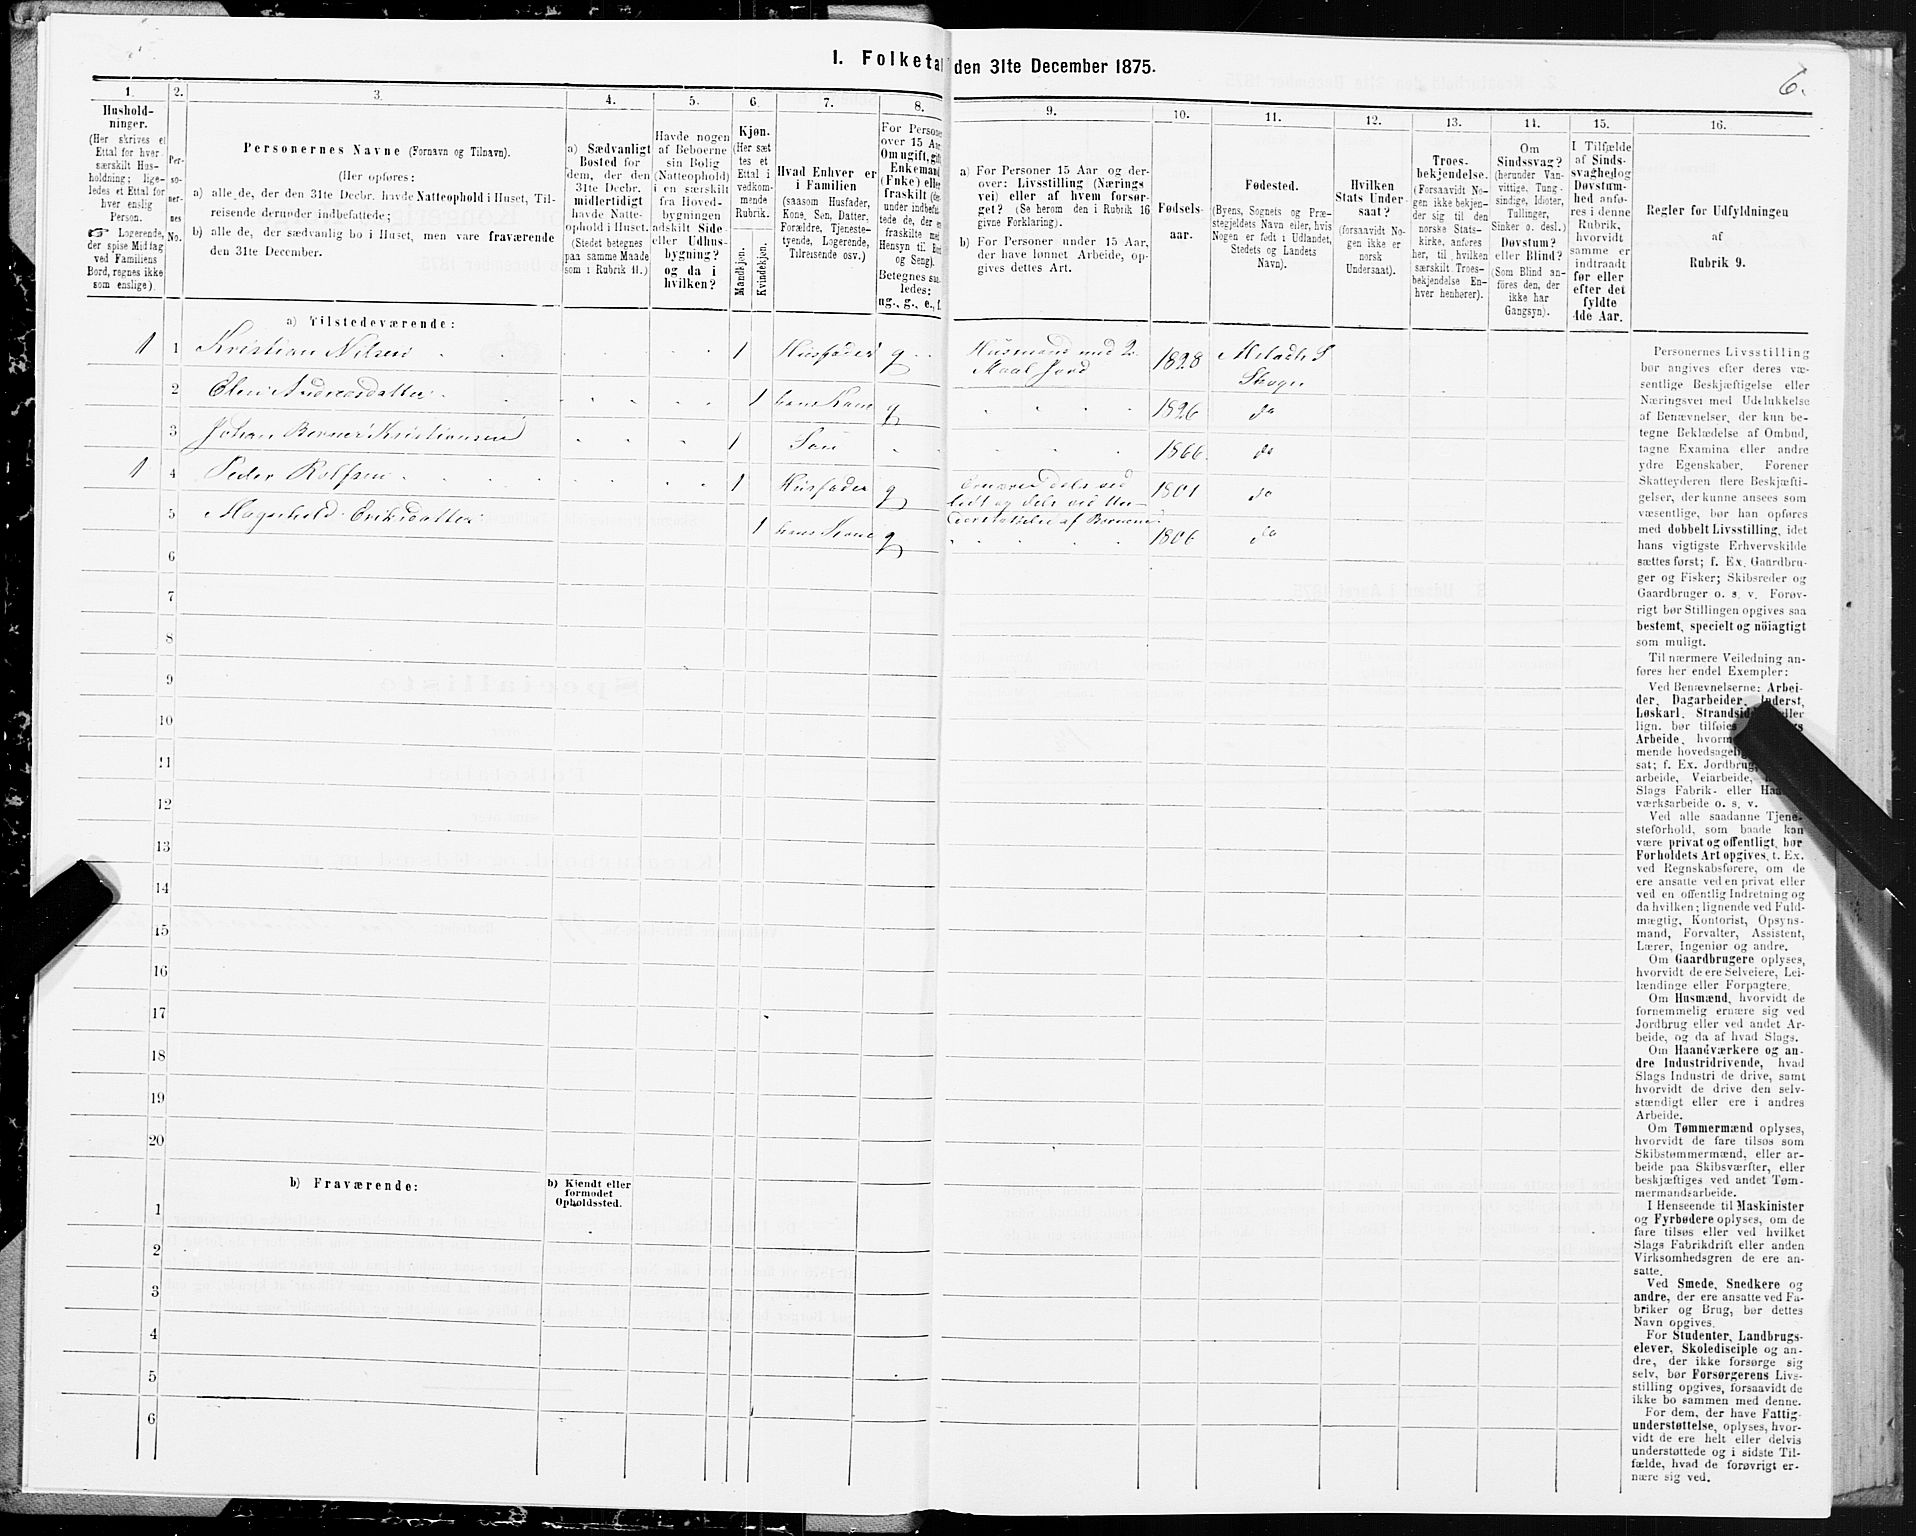 6.
I. Folketal den 31te December 1875.
1.
Hushold-
ninger.
(Her skrives et
Ettal for hver
særskilt Hus-
holdning; lige-
ledes et Ettal for
hver enslig
Person.
Logerende,
der spise Middag
ved Familiens
Bord, regnes ikke
som enslige).
2.
Per-
so-
ner-
nes
No.
3.
Personernes Navne (Fornavn og Tilnavn).
(Her opføres:
a) alle de, der den 31te Decbr. havde Natteophold i Huset, Til-
reisende derunder indbefattede;
b) alle de, der sædvanlig bo i Huset, men vare fraværende
den 31te December.
4.
a) Sædvanligt
Bosted for
dem, der den
31te Decbr.
midlertidigt
havde Natte-
ophold i Huset.
(Stedet betegnes
paa samme Maade
som i Rubrik 11.)
5.
Havde nogen
af Beboerne
sin Bolig
(Natteophold)
i en særskilt
fra Hoved-
bygningen
adskilt Side-
eller Udhus-
bygning?
og da i
hvilken?
6.
Kjøn.
(Her sæt-
tes et
Ettal i
vedkom-
mende
Rubrik.
Mandkjøn.
Kvindekjøn.
7.
Hvad Enhver er
i Familien
(saasom Husfader,
Kone, Søn, Datter,
Forældre, Tjeneste-
tyende, Logerende,
Tilreisende osv.)
8.
For Personer
over 15 Aar:
Om ugift, gift,
Enkemand
(Enke) eller
fraskilt
under indbefat-
tede de, der ere
fraskilte med
Hensyn til Bord
og Seng).
Betegnes saa-
ledes:
ug., g., e., f.
9.
a) For Personer 15 Aar og der-
over: Livsstilling (Nærings-
vei) eller af hvem forsør-
get? (Se herom den i Rubrik 16
givne Forklaring).
b) For Personer under 15 Aar,
der have lønnet Arbeide, op-
gives dettes Art.
10.
Fødsels-
aar.
11.
Fødested.
(Byens, Sognets og Præ-
stegjeldets Navn eller, hvis
Nogen er født i Udlandet,
Stedets og Landets
Navn).
12.
Hvilken
Stats Under-
saat?
(forsaavidt No-
gen ikke er
norsk
Undersaat).
13.
Troes-
bekjendelse.
(Forsaavidt No-
gen ikke bekjen-
der sig til den
norske Stats-
kirke, anføres
her, til hvilken
særskilt Troes-
bekjendelse En-
hver henhører).
14.
Om
Sindssvag?
(herunder Van-
vittige, Tung-
sindige, Idioter,
Tullinger,
Sinker o. desl.)
Døvstum?
eller Blind?
(Som Blind an-
føres den, der
ikke har
Gangsyn).
15.
I Tilfælde
af Sinds-
svaghed og
Døvstum-
hed anfø-
res i denne
Rubrik,
hvorvidt
samme er
indtraadt
før eller
efter det
fyldte
4de Aar.
16.
Regler for Udfyldningen
af
Rubrik 9.
a) Tilstedeværende:
1 1 Kristian Nilsen 1 Husfader g Husmand med 2
Maal Jord 1828 S
Skogn
2 Elen Andreasdatter 1 hans Kone g 1826 do
3 Johan Berner Kristiansen 1 Søn 1866 do
1 4 Peder Rolfsen 1 Husfader g dels ved
og dels ved Un- 1801 do
5 Magnhild Eriksdatter 1 hans Kone g derstøttelse af Børnene 1806 do
6
7
8
9
10
11
12
13
14
15
16
17
18
19
20
b) Fraværende:
b) Kjendt eller
formodet
Opholdssted.
1
2
3
4
5
6
Personernes Livsstilling
bør angives efter deres væ-
sentlige Beskjæftigelse eller
Næringsvei med Udelukkelse
af Benævnelser, der kun be-
tegne Beklædelse af Ombud,
tagne Examina eller andre
ydre Egenskaber. Forener
Skatteyderen flere Beskjæfti-
gelser, der kunne ansees som
væsentlige, bør han opføres
med dobbelt Livsstilling, idet
hans vigtigste Erhvervskilde
sættes først; f. Ex. Gaardbru-
ger og Fisker; Skibsreder og
Gaardbruger o. s. v. Forøv-
rigt bør Stillingen opgives saa
bestemt, specielt og nöiagtigt
som muligt.
Til nærmere Veiledning an-
føres her endel Exempler:
Ved Benævnelserne: Arbei-
der, Dagarbeider, Inderst,
Løskarl, Strandsidder eller
lign. bør tilføies
Arbeide, hvorm
mende hovedsagelig
sat; f. Ex. Jordbrug,
arbeide, Veiarbeide,
Slags Fabrik- eller Haand-
værksarbeide o. s. v.
Ved alle saadanne Tjene-
steforhold, som baade kan
være privat og offentligt, bør
Forholdets Art opgives, t. Ex.
ved Regnskabsførere, om de
ere ansatte ved en privat eller
ved en offentlig Indretning og
da hvilken; lignende ved Fuld-
mægtig, Kontorist, Opsyns-
mand, Forvalter, Assistent,
Lærer, Ingeniør og andre.
Om Gaardbrugere oplyses,
hvorvidt de ere Selveiere, Lei-
lændinge eller Forpagtere.
Om Husmænd, hvorvidt de
fornemmelig ernære sig ved
Jordbrug eller ved andet Ar-
beide, og da af hvad Slags.
Om Haandværkere og an-
dre Industridrivende, hvad
Slags Industri de drive, samt
hvorvidt de drive den selv-
stændigt eller ere i andres
Arbeide.
Om Tømmermænd oplyses,
hvorvidt de fare tilsøs som
Skibstømmermænd, eller ar-
beide paa Skibsværfter, eller
beskjæftiges ved andet Tøm-
mermandsarbeide.
I Henseende til Maskinister
og Fyrbødere oplyses, om de
fare tilsøs eller ved hvilket
Slags Fabrikdrift eller anden
Virksomhedsgren de ere an-
satte.
Ved Smede, Snedkere og
andre, der ere ansatte ved Fa-
briker og Brug, bør dettes
Navn opgives.
For Studenter, Landbrugs-
elever, Skoledisciple og an-
dre, der ikke forsørge sig
selv, bør Forsørgerens Livs-
stilling opgives, forsaavidt de
ikke bo sammen med denne.
For dem, der have Fattig-
understøttelse, oplyses, hvor-
vidt de ere helt eller delvis
understøttede og i sidste Til-
fælde, hvad de forøvrigt er-
nære sig ved.